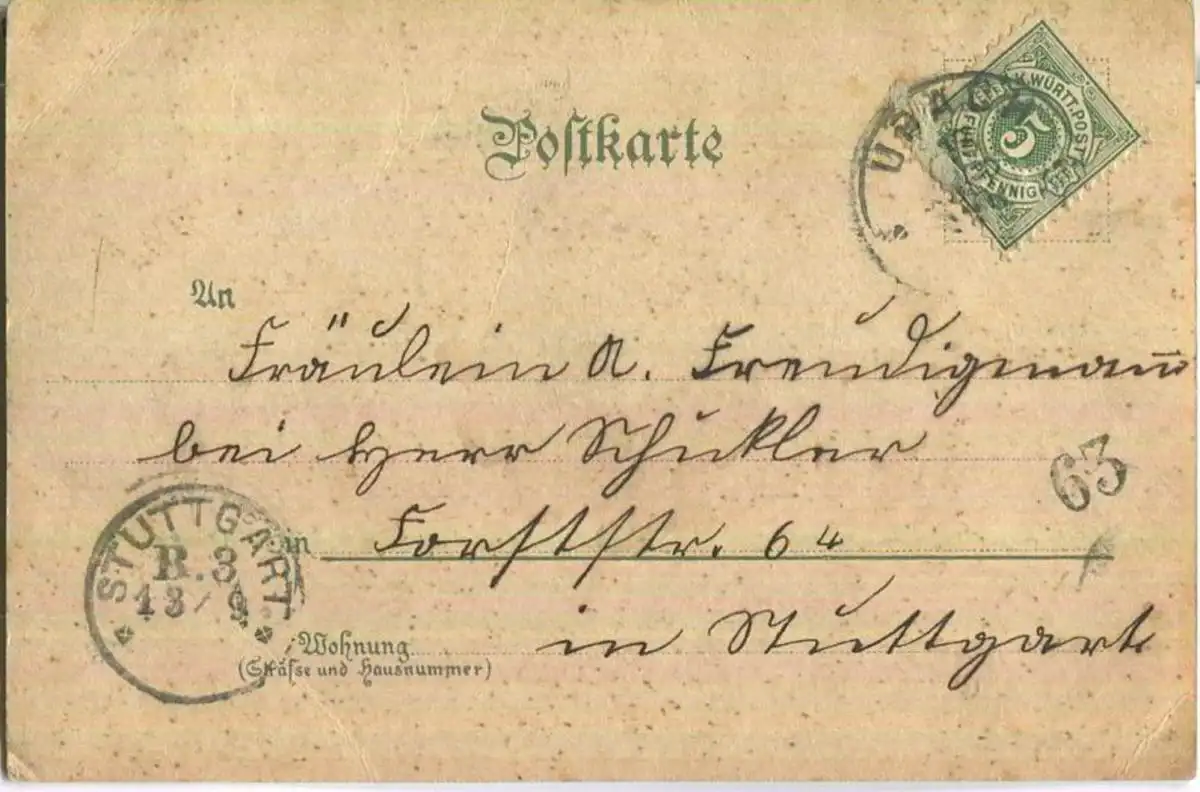 Postkarte
URAC
K. WÜRTT. POST
FÜNF PFENNIG
5
An
Fräulein A. Freudigmann
bei Herr Schukler
63
STUTTGART
B. 3
13/9
in Forststr. 64
in Stuttgart
Wohnung
(Straße und Hausnummer)